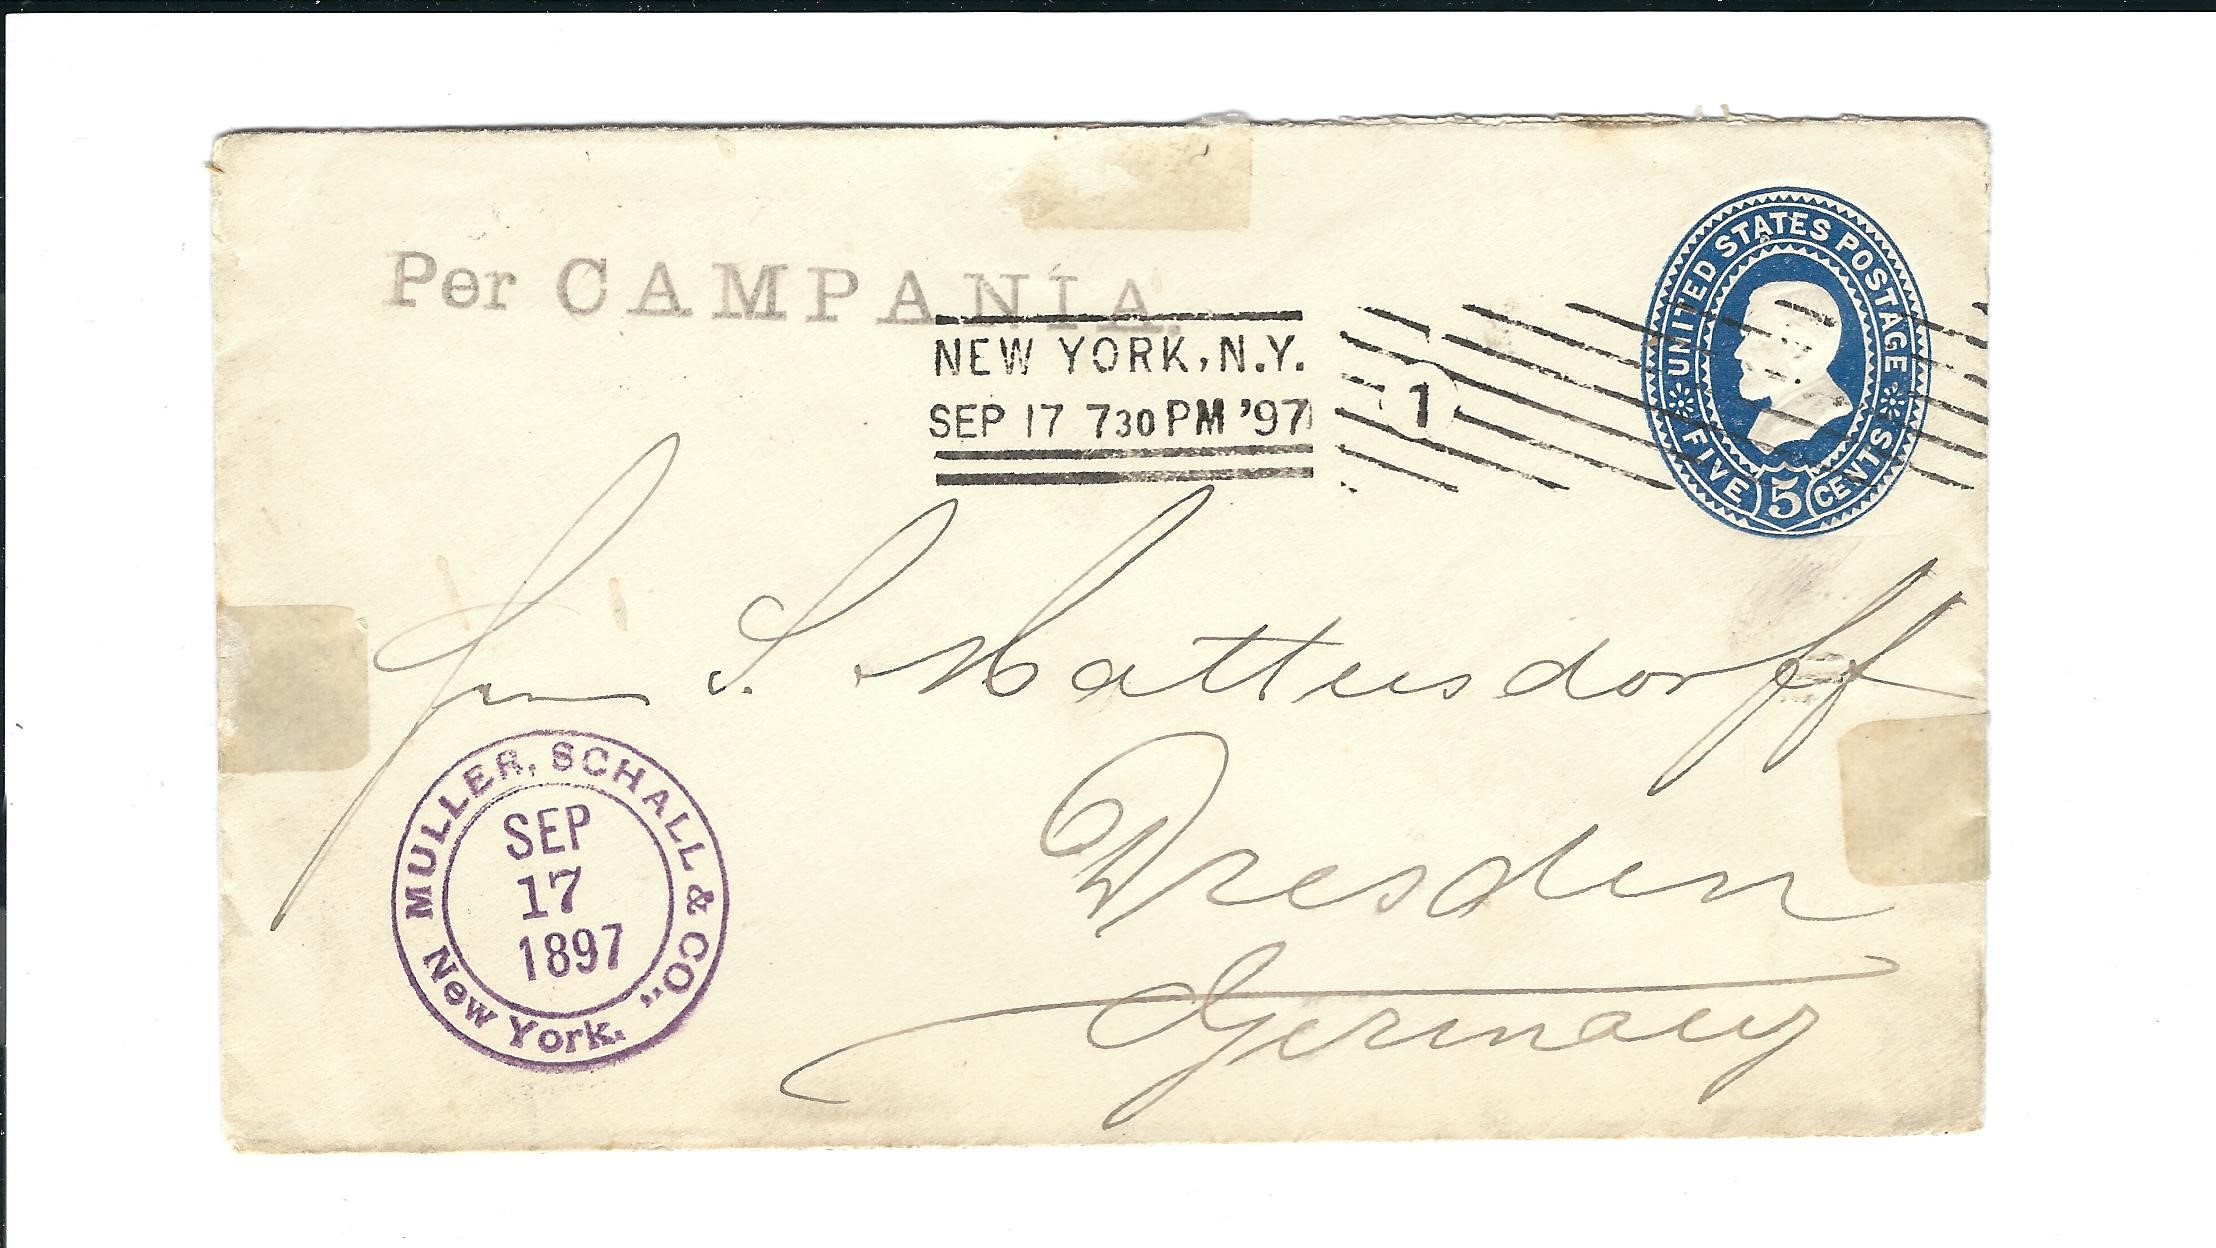 Per CAMPANIA.
NEW YORK, N.Y.
SEP 17 730PM '97
1
UNITED STATES POSTAGE
FIVE 5 CENTS
S. Mattersdorff
Dresden
Germany
MULLER, SCHALL & CO„
SEP
17
1897
New York.